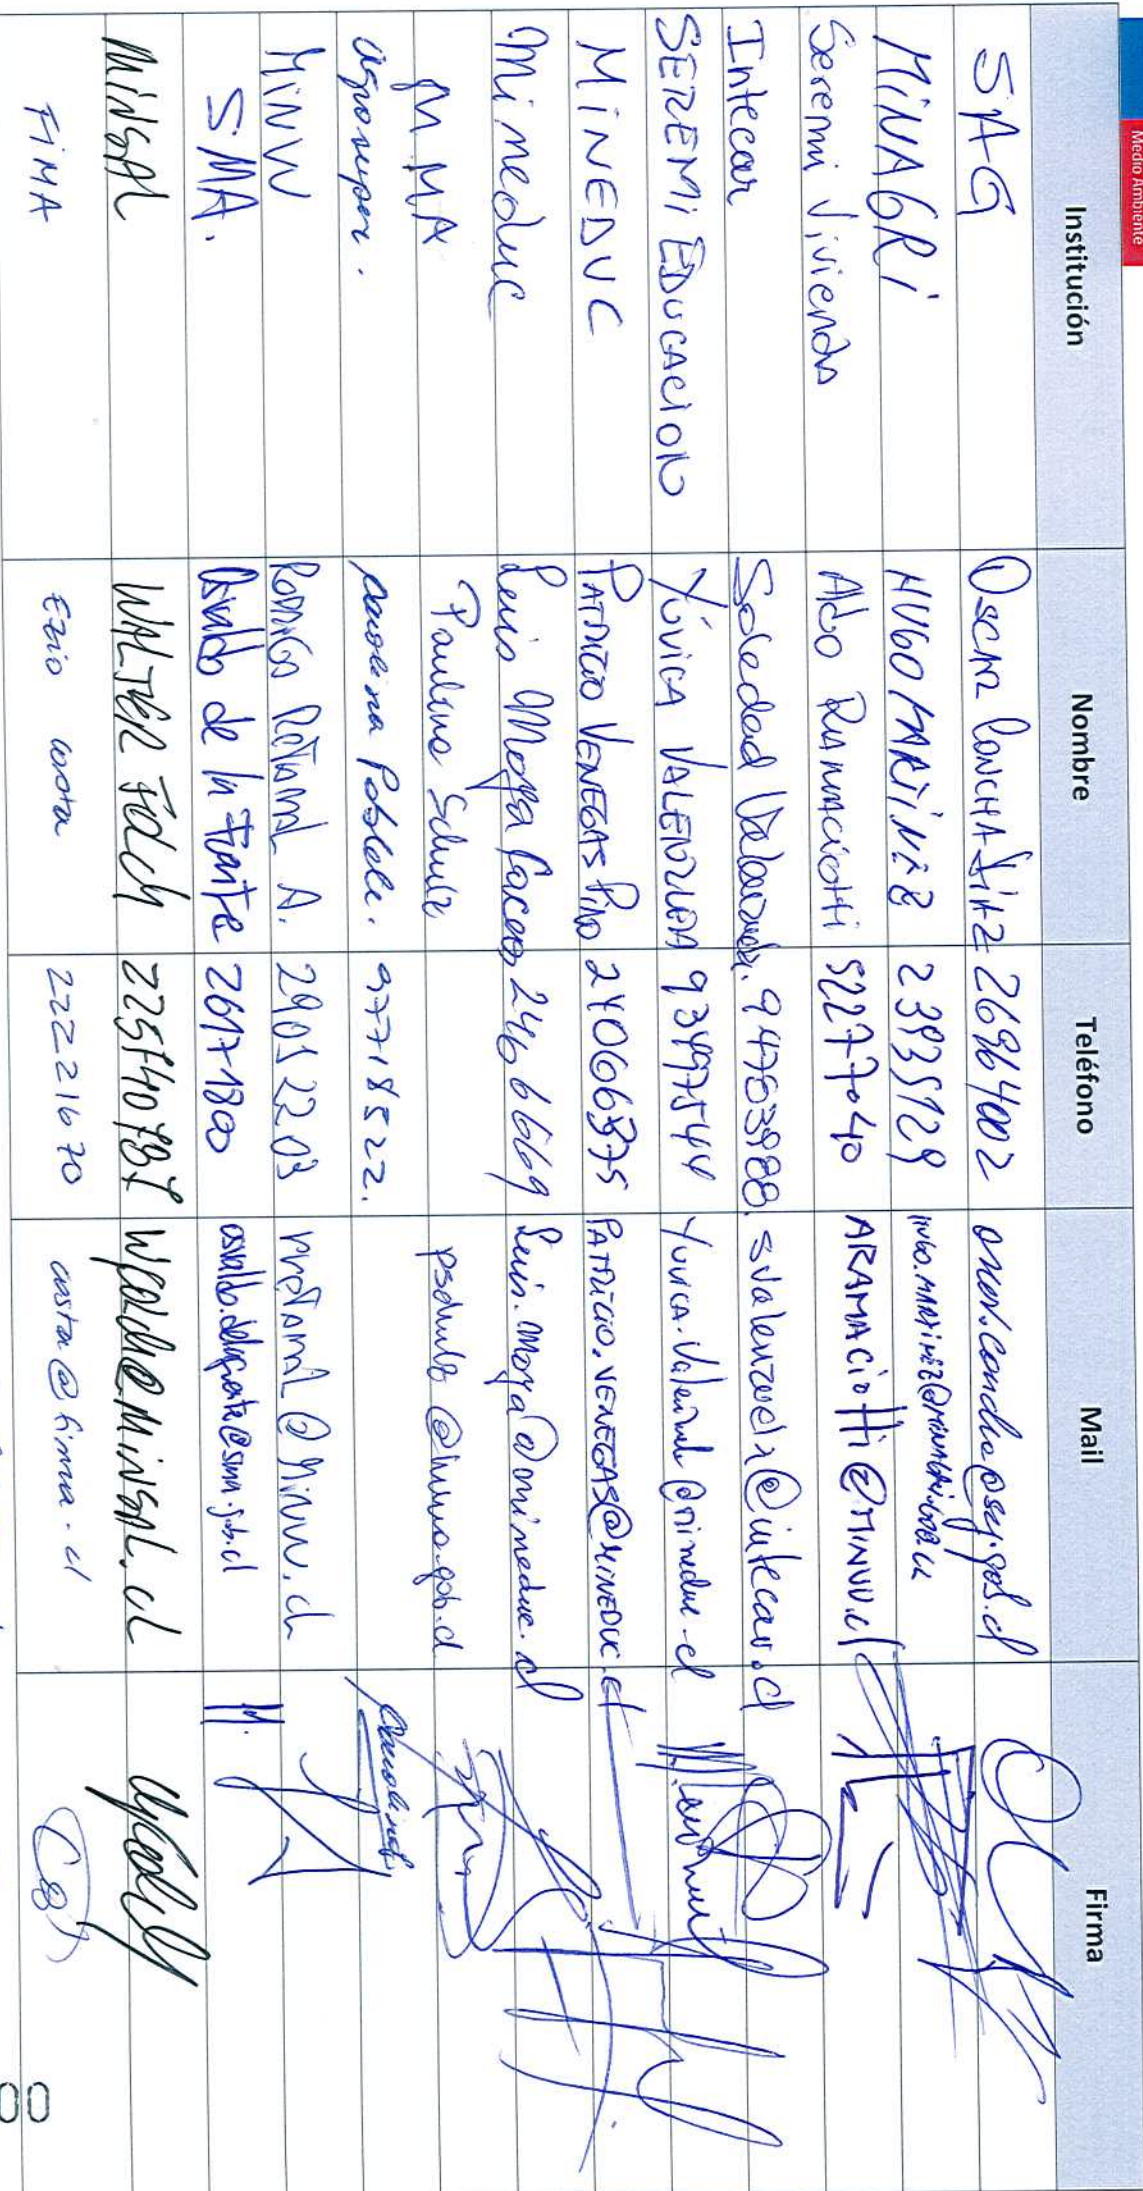 Medio Ambiente
Institución Nombre Teléfono Mail Firma
SAG Oscar Concha Díaz 26964002 oscar.concha@sag.gob.cl
MINAGRI HUGO MARTINEZ 23935129 hugo.martinez@minagri.gob.cl
Seremi Vivienda Aldo Ramaciotti 92277040 ARAMACIOTTI@MINVU.cl
Intecar Soledad Valenzuela. 94783988. svalenzuela@intecar.cl
SEREMI EDUCACION YÚVICA VALENZUELA 93497544
MINEDUC PATRICIO VENEGAS PINO 24066375 PATRICIO.VENEGAS@MINEDUC.cl
Mineduc Luis Moya 2466669 Luis.moya@mineduc.cl
MMA Paulina Schulz pschulz@mma.gob.cl
agrosuper. Carolina Poblete. 97718522. Carolina
MINVU Rodrigo Retamal A. 29012203 rretamal@minvu.cl
SMA. Osvaldo de la Fuente 26171800
MINSAL WALTER Folch 225740787 Wfolch@MINSAL.cl
FIMA Ezio Costa 222221670 costa@fima.cl